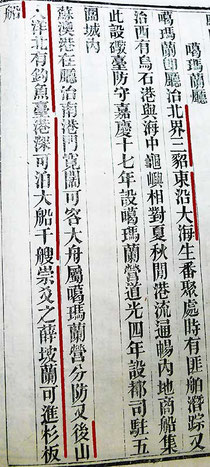 噶瑪蘭廳
噶瑪蘭卽廳治北界三貂東沿大海生番聚處時有匪舶潛踪又
治西有烏石港與海中龜嶼相對夏秋間港流通暢內地商船集
此設礮臺防守嘉慶十七年設噶瑪蘭營道光四年設都司駐五
圍城內
蘇澳港在廳治南港門寬闊可容大舟屬噶瑪蘭營分防又後山
大洋北有釣魚臺港深可泊大船千艘崇爻之薛坡蘭可進杉板
船